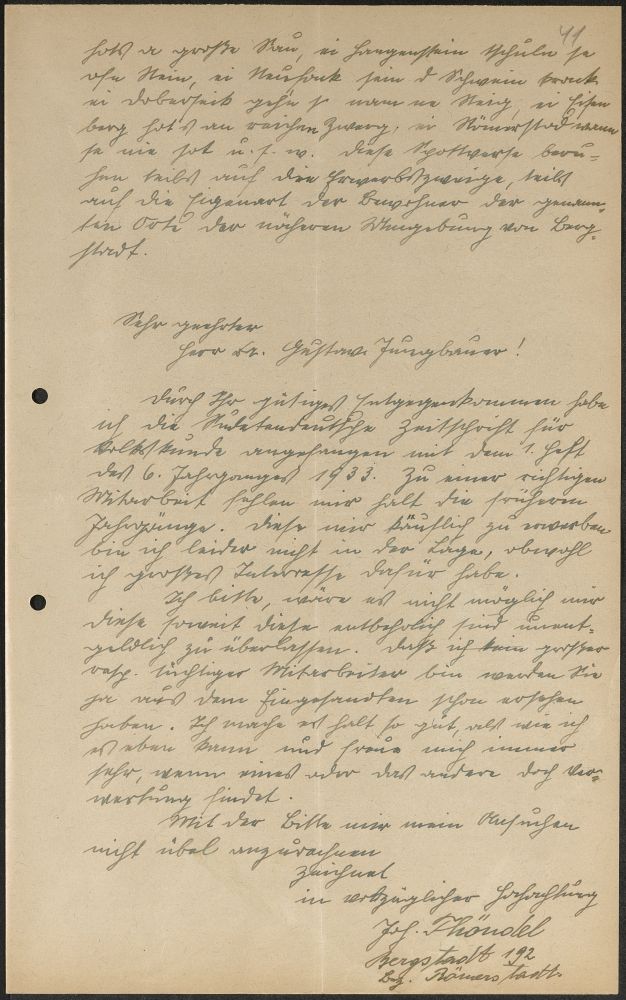 41
hots a große Sau, ei Langenstein schuln se
ofn Stein, ei Neufank sein d Schwein krank
ei Doberseik gehn s nam ne Steig, ei Eisen
berg hot's an reichen Zwerg, ei Römerstadt wann
se nie hot u. s. w. Diese Spottverse beru-
hen teils auf den Erwerbszweige, teils
auf die Eigenart der Bewohner der genann-
ten Orte der näheren Umgebung von Berg-
stadt.
Sehr geehrter
Herr Dr. Gustav Jungbauer!
Durch Ihr gütiges Entgegenkommen habe
ich die Sudetendeutsche Zeitschrift für
Volkskunde angefangen mit dem 1. Heft
des 6. Jahrganges 1933. Zu einer richtigen
Mitarbeit fehlen mir halt die früheren
Jahrgänge. Diese mir käuflich zu erwerben
bin ich leider nicht in der Lage, obwohl
ich großes Interesse dafür habe.
Ich bitte, wäre es nicht möglich mir
diese soweit diese entbehrlich sind unent-
geldlich zu überlassen. Daß ich kein großer
resp. tüchtiger Mitarbeiter bin werden Sie
ja aus dem Eingesandten schon ersehen
haben. Ich mache es halt so gut, als wie ich
es eben kann und freue mich immer
sehr, wenn eines oder das andere doch Ver-
wertung findet.
Mit der Bitte mir mein Ansuchen
nicht übel anzurechnen
zeichnet
in vorzüglicher Hochachtung
Joh. Thöndel
Bergstadt 192
Bez. Römerstadt.